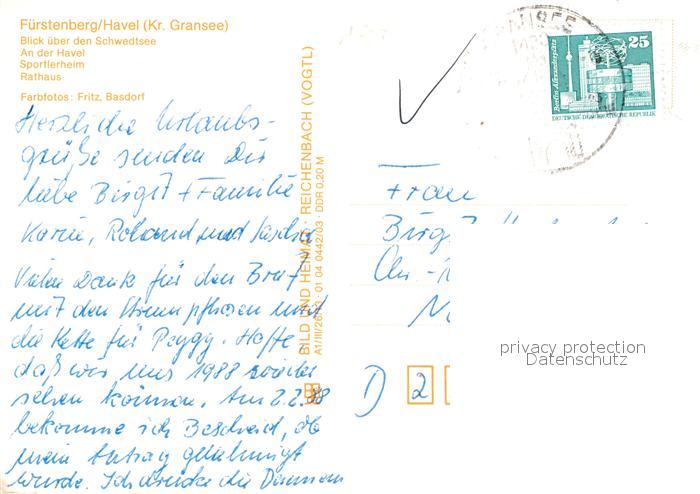 Fürstenberg/Havel (Kr. Gransee)
Blick über den Schwedtsee
An der Havel
Sportlerheim
Rathaus
Farbfotos: Fritz, Basdorf
Herzliche Urlaubs-
grüße senden Dir
liebe Birgit + Familie
Karin, Roland und
Vielen Dank für den Brief
mit den Strumpfhosen und
die Kette für Peggy. Hoffe
daß wir uns 1988 wieder
sehen können. Am 2.2.88
bekomme ich Bescheid, ob
mein Antrag genehmigt
wurde. Ich drücke die Daumen
BILD UND HEIMAT REICHENBACH (VOGTL)
A1/III/26/13 01 04 0442/03 · DDR 0,20 M
25
Berlin, Alexanderplatz
DEUTSCHE DEMOKRATISCHE REPUBLIK
Frau
D 2
privacy protection
Datenschutz